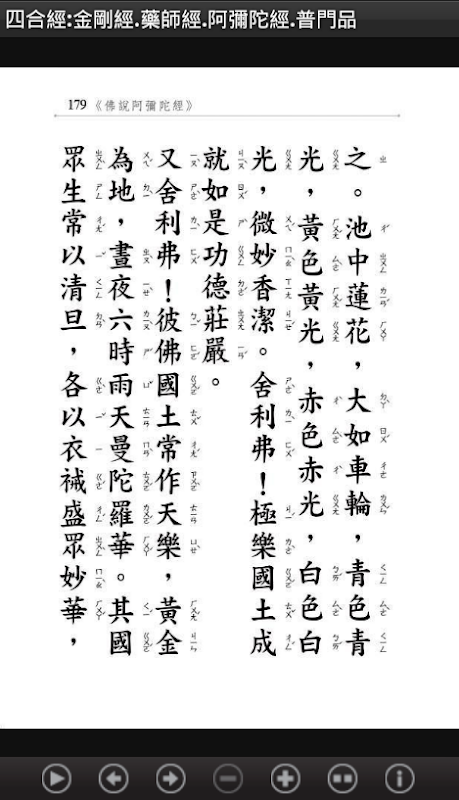 四合經:金剛經.藥師經.阿彌陀經.普門品
179 《佛說阿彌陀經》
之。池中蓮花，大如車輪，青色青
光，黃色黃光，赤色赤光，白色白
光，微妙香潔。舍利弗！極樂國土成
就如是功德莊嚴。
又舍利弗！彼佛國土常作天樂，黃金
為地，晝夜六時雨天曼陀羅華。其國
眾生常以清旦，各以衣祴盛眾妙華，